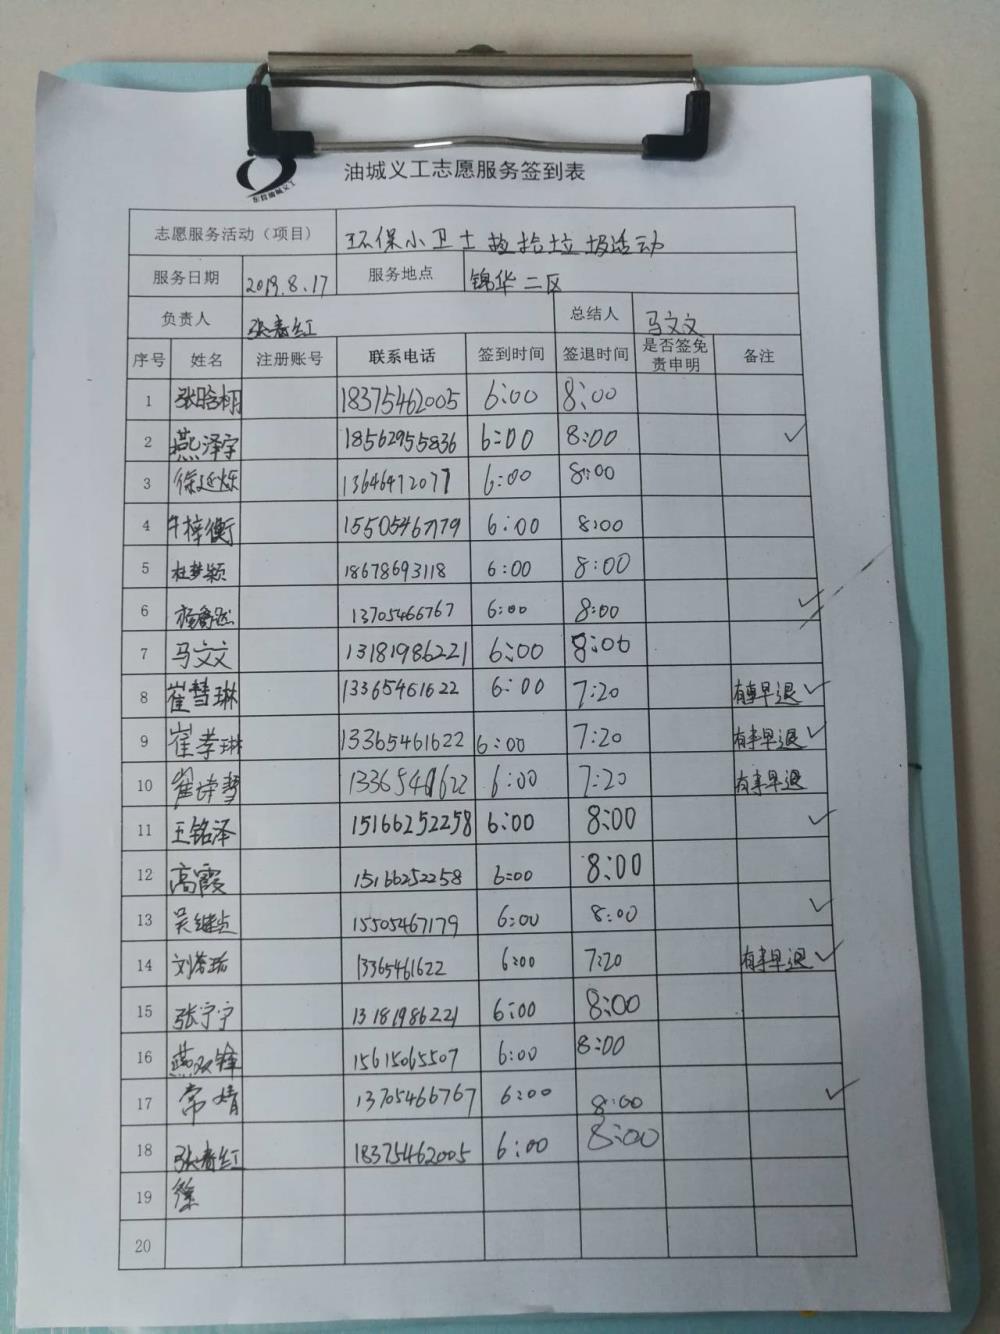 东营油城义工
油城义工志愿服务签到表
志愿服务活动（项目） 环保小卫士 捡拾垃圾活动
服务日期 2019.8.17 服务地点 锦华二区
负责人 张春红 总结人 马文文
序号 姓名 注册账号 联系电话 签到时间 签退时间 是否签免责申明 备注
1 张晗栩 18375462005 6:00 8:00
2 燕泽宇 18562955836 6:00 8:00 ✓
3 徐延烁 13646472077 6:00 8:00
4 牛梓衡 15505467179 6:00 8:00
5 杜梦颖 18678693118 6:00 8:00
6 13705466767 6:00 8:00 ✓
7 马文文 13181986221 6:00 8:00
8 崔慧琳 13365461622 6:00 7:20 有事早退 ✓
9 崔孝琳 13365461622 6:00 7:20 有事早退 ✓
10 崔 13365461622 6:00 7:20 有事早退
11 王铭泽 15166252258 6:00 8:00 ✓
12 高霞 15166252258 6:00 8:00
13 吴继贞 15505467179 6:00 8:00 ✓
14 刘 13365461622 6:00 7:20 有事早退 ✓
15 张宁宁 13181986221 6:00 8:00
16 燕双锋 15615065507 6:00 8:00
17 常婧 13705466767 6:00 8:00 ✓
18 张春红 18375462005 6:00 8:00
19 徐
20